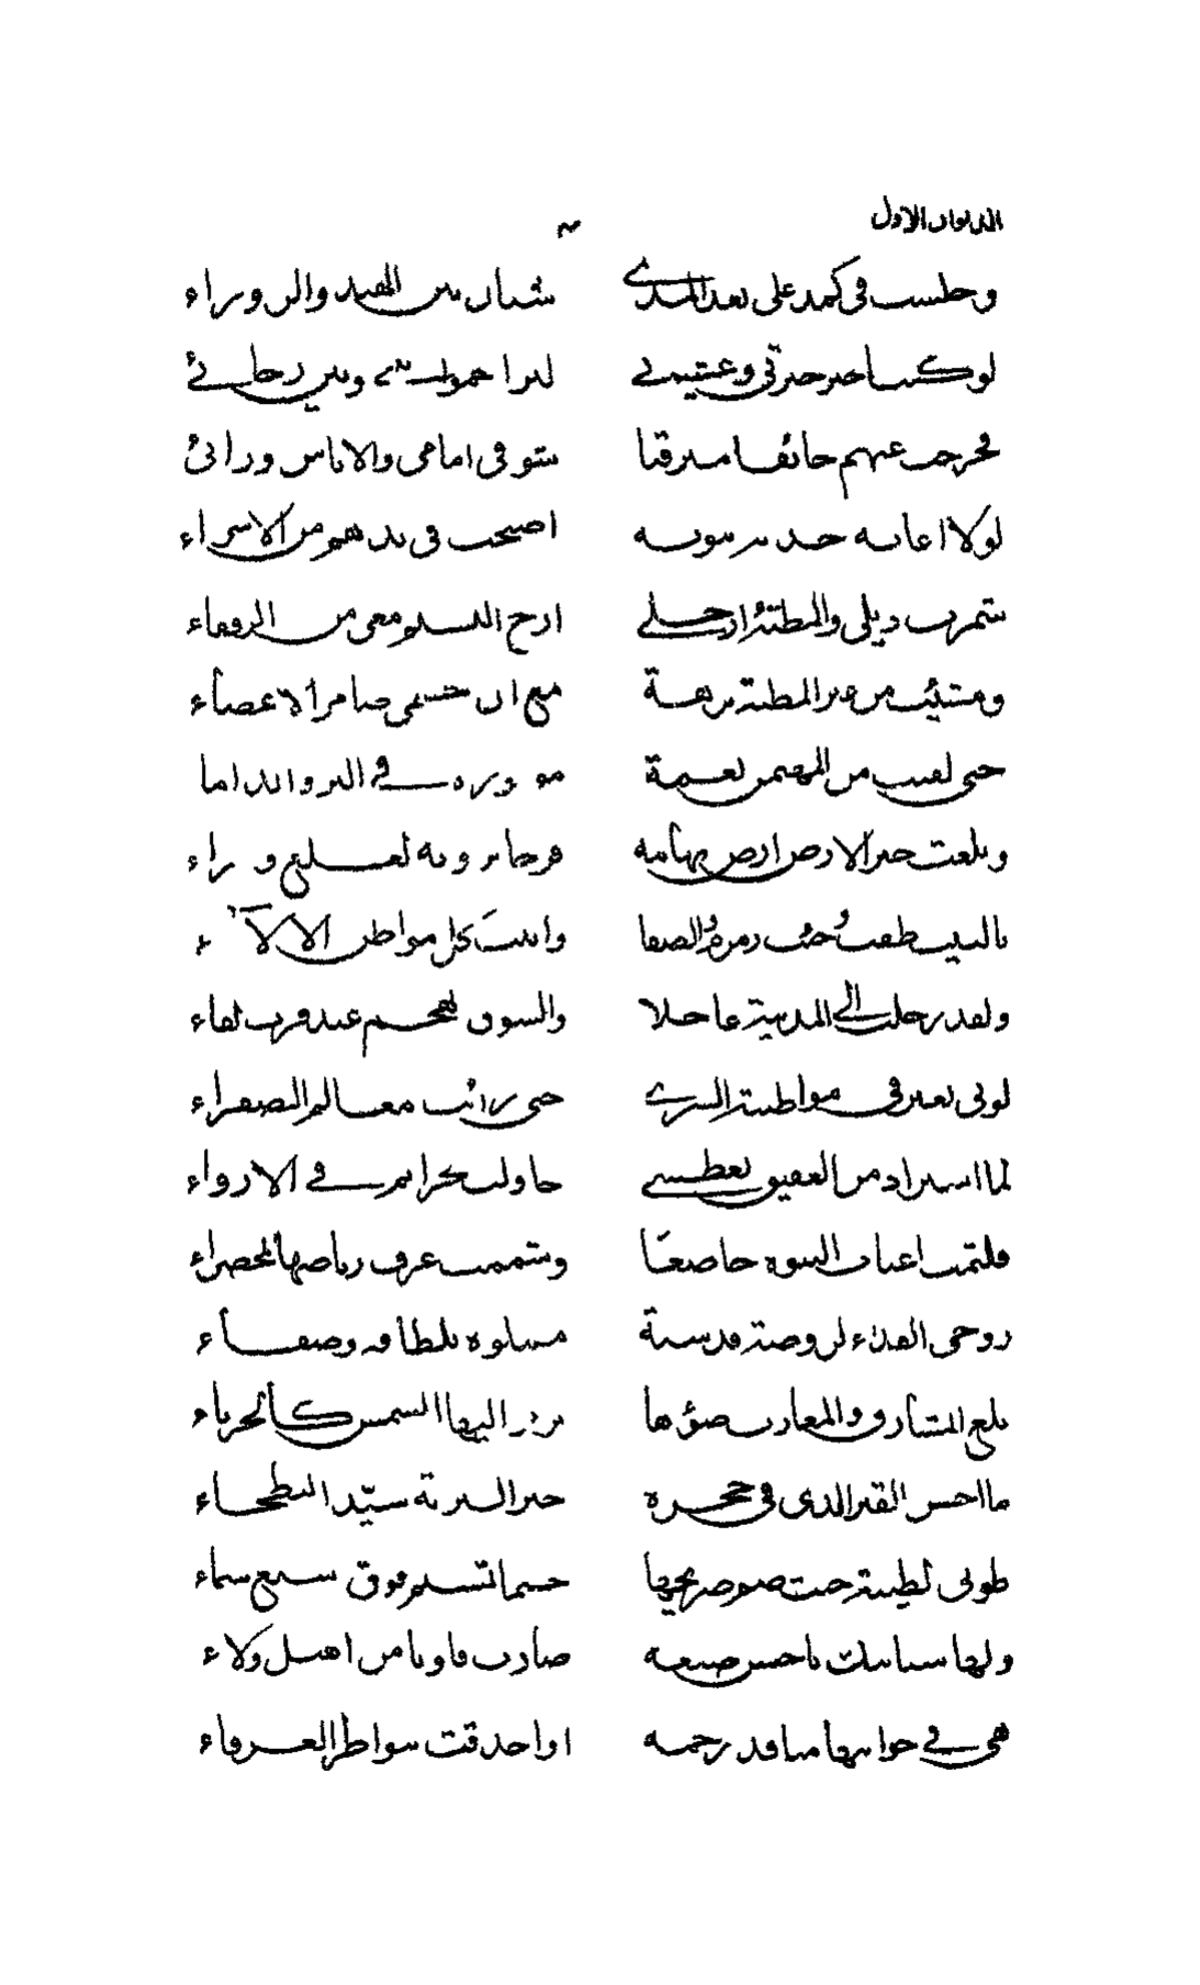 الديوان الاول ٣
وجلست في كمد على بعد المدى شتان بين الهند والزوراء
لو كنت اخبر جيرتي وعشيرتي لتزاحموا بيني وبين رجائي
فخرجت عنهم خائفا مترقبا شوقي امامي والاناس ورائي
لولا اعانه اصبحت في يد هم من الاسراء
شمرت ذيلي والمطية ارجلي ارح النسيم معي من الرفقاء
ومشيت من غير المطية برهة مع ان جسمي ضامر الاعضاء
حتى لقيت من المهيمن نعمة في البر والداما
وبلغت خير الارض ارض تهامة
بالبيت طفت وحئت زمزم والصفا واتيت كل مواطن الالآء
ولقد رحلت الى المدينة عاجلا والشوق عند قرب لقاء
حتى رأيت معالم الصفراء
لما استزاد من العقيق تعطشي حاولت بحرا في الارواء
فلثمت اعتاب النبوة خاضعا وشممت عرف رياضها الخضراء
روحي الفداء لروضة قدسية مملوة بلطافة وصفاء
بلغ المشارق والمغارب ضوؤها اليها الشمس كالحرباء
ما احسن القبر الذي في حجره خير البرية سيد البطحاء
طوبى لطيبة حيث ضم ضريحها جسما تسنم فوق سبع سماء
ولها شبابيك باحسن صنعة صادت قلوبا من اهل ولاء
هي في جوانبها منافذ رحمة او احدقت نواظر العرفاء